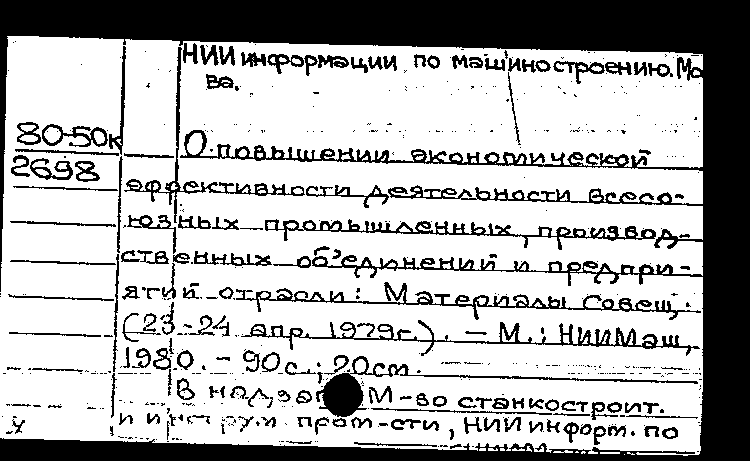 НИИ информации по машиностроению. Мо
ва.
80-50к
2698
О повышении экономической
эффективности деятельности всесо-
юзных промышленных, производ-
ственных объединений и предпри-
ятий отрасли: Материалы совещ.
(23-24 апр. 1979г.). – М.: НИИМаш,
1980. – 90с.; 20см.
В надзаг М-во станкостроит.
и инструм пром-сти, НИИ информ. по